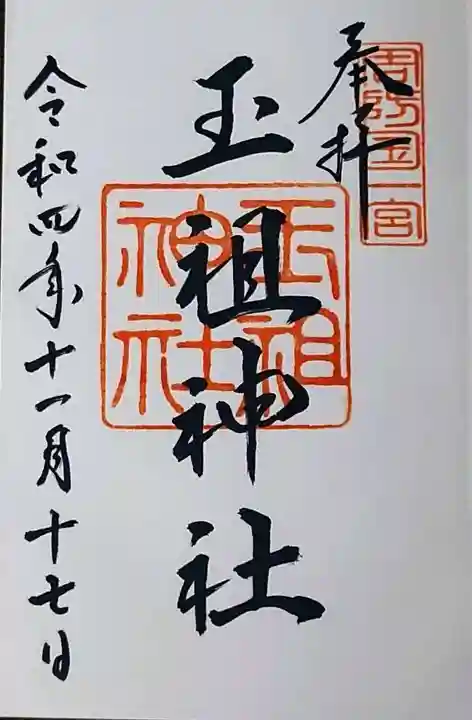 周防国一宮
奉拝
玉祖神社
玉祖神社
令和四年十一月十七日